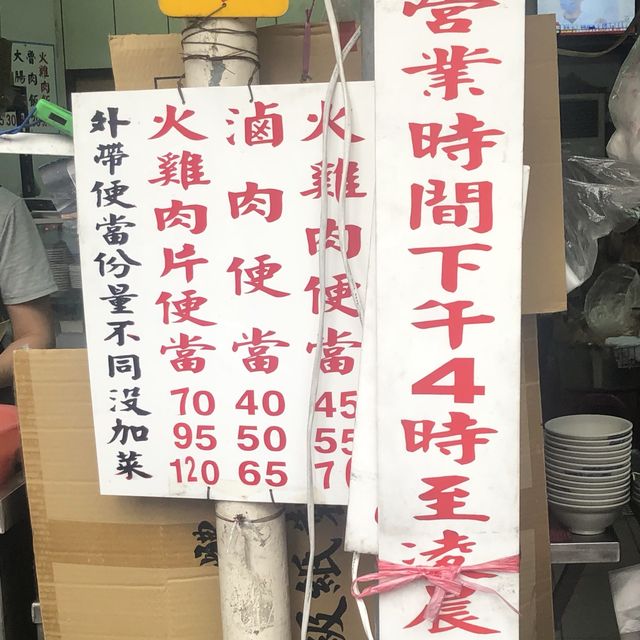 營業時間下午4時至凌晨
火雞肉便當
45
55
滷肉便當
40
50
65
火雞肉片便當
70
95
120
外帶便當份量不同沒加菜
火雞肉飯
魯肉飯
大腸